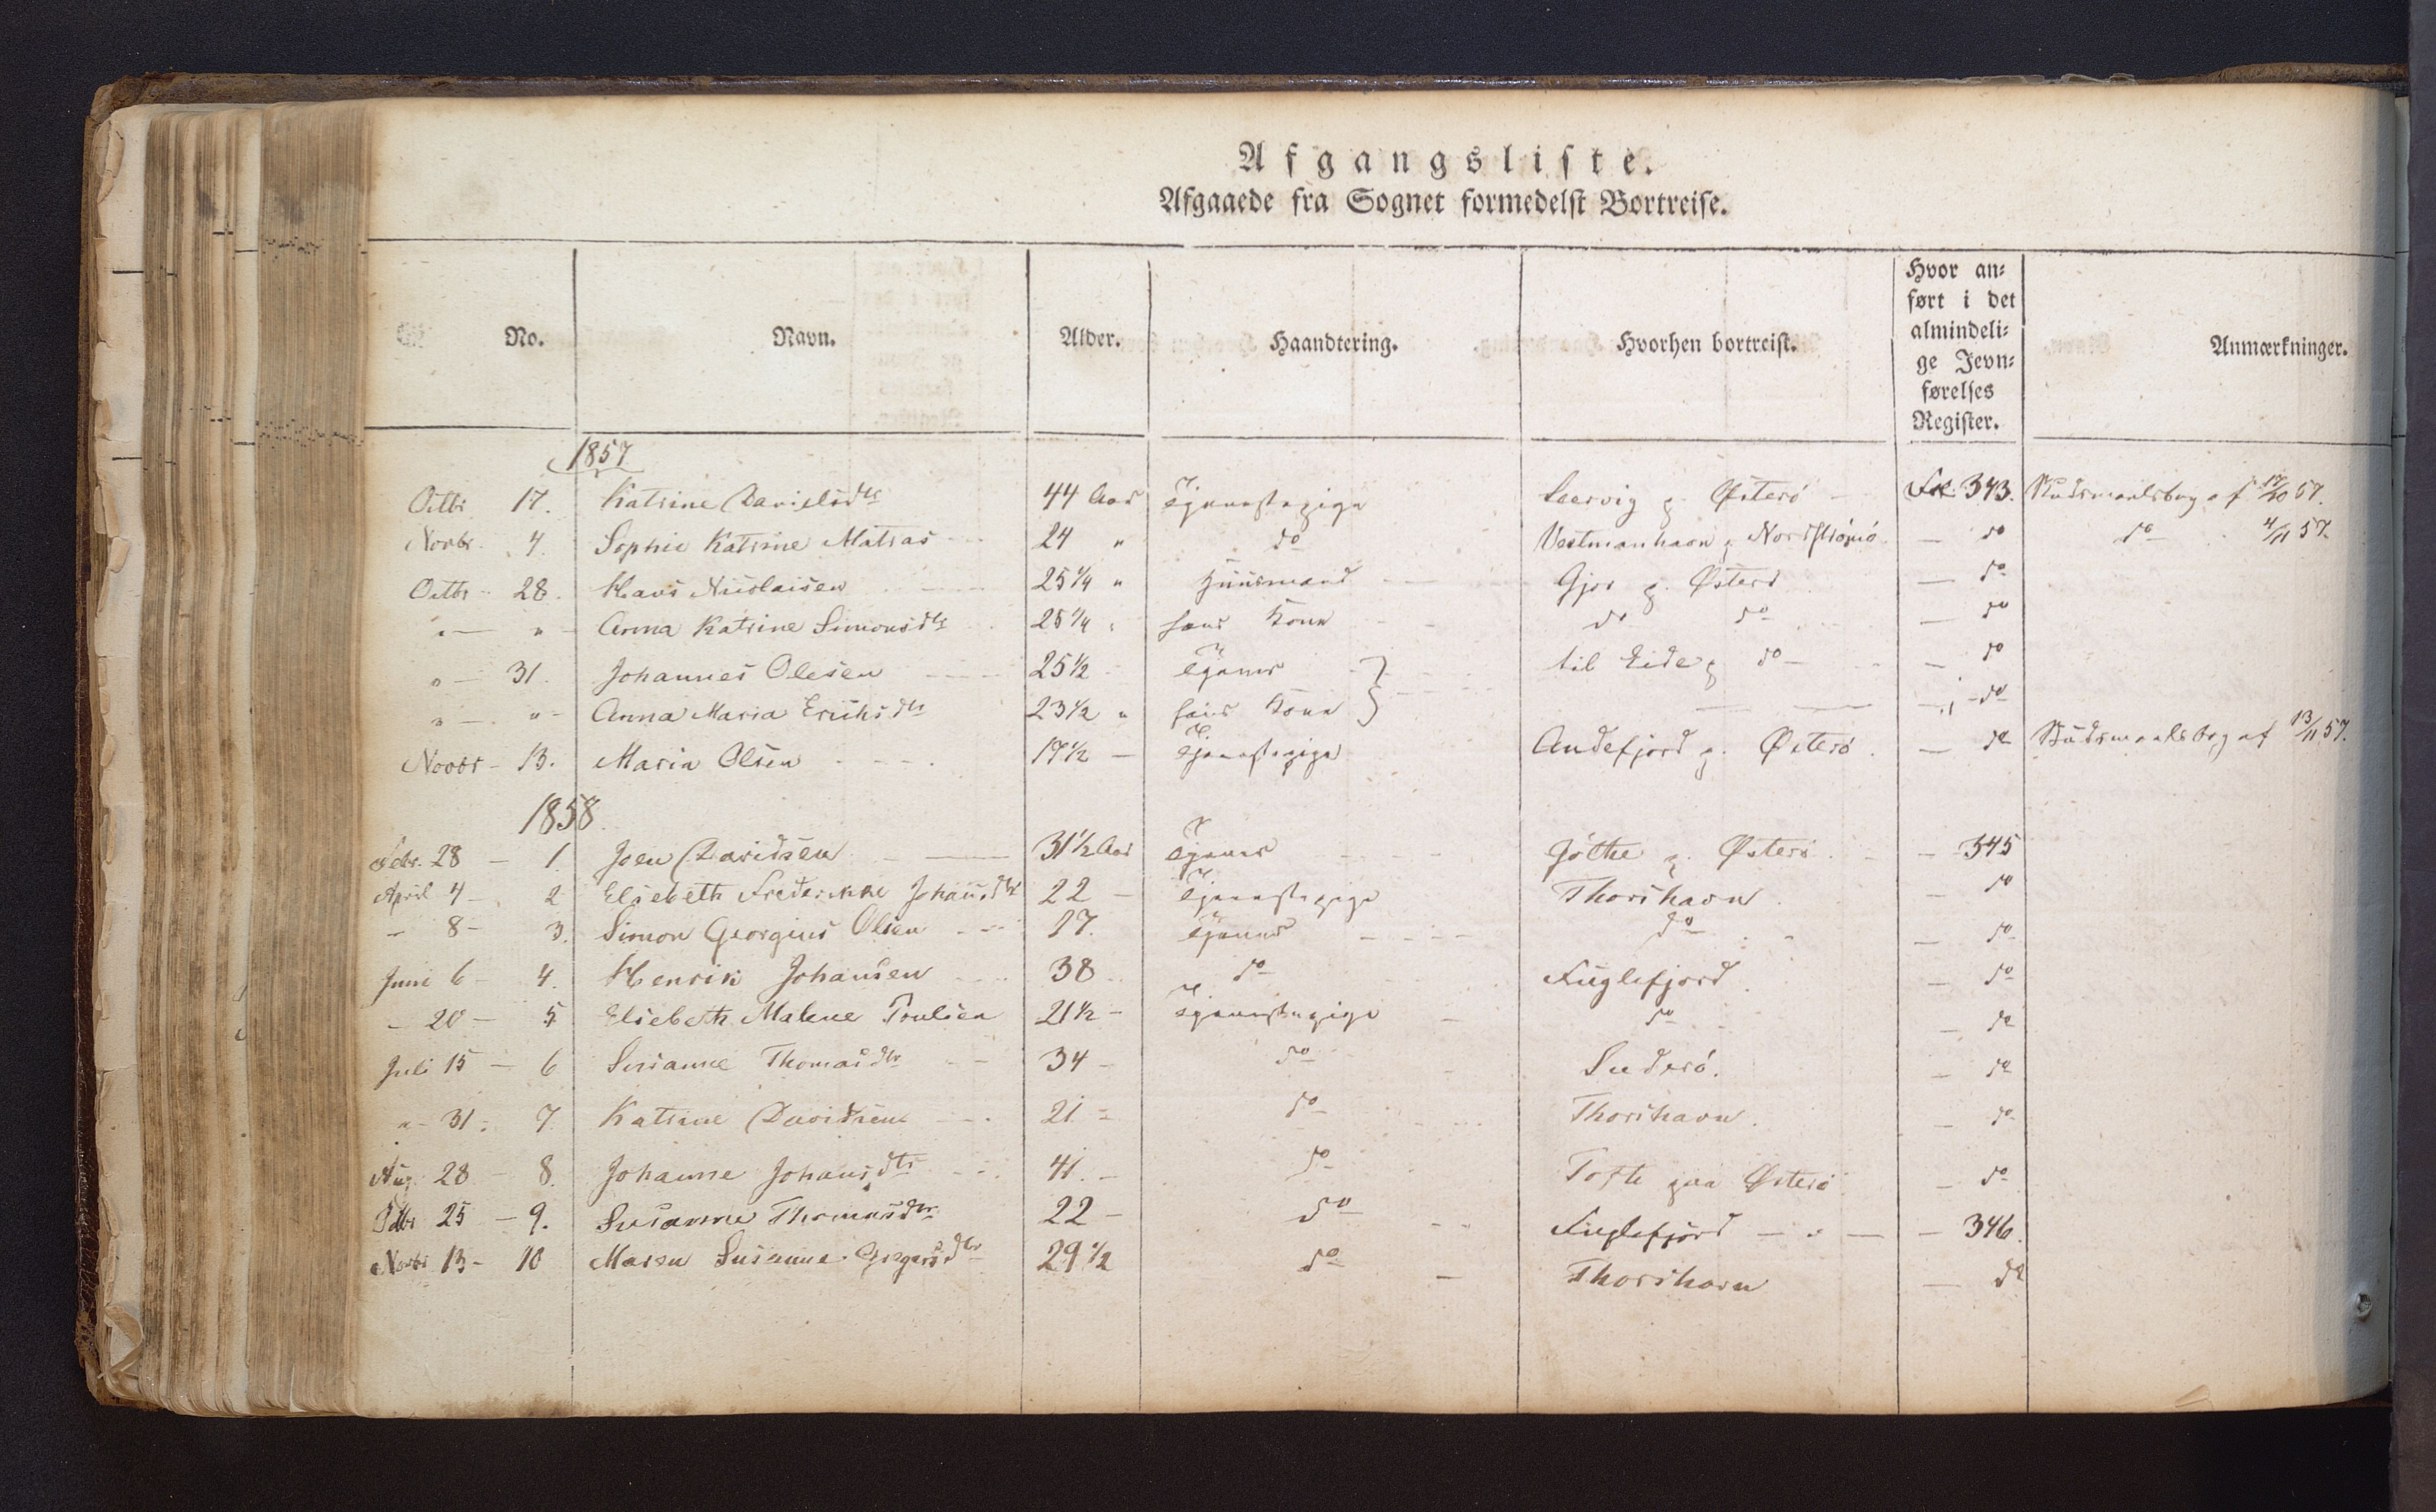 Afgangsliste.
Afgaaede fra Sognet formedelst Bortreise.
No. Navn. Alder. Haandtering. Hvorhen bortreist. Hvor an= ført i det almindeli= ge Jevn= førelses Register. Anmærkninger.
1857
Octbr. 17. Katrine Danielsdtr 44 Aar Tjenestepige Leervig p. Østerö Fol. 343. Skudsmaalsbog af 17/10 57.
Novbr. 4. Sophie Katrine Matras 24 " do Vestmanhavn p. Nordströmö — do do 4/11 57.
Octbr 28. Hans Nicolaisen 25 1/4 " Huusmand Gjov p. Østerö — do
" — " Anna Katrine Simonsdtr 25 1/4 " hans Kone do do — do
" — 31. Johannes Olesen 25 1/2 Tjener til Eide p do — do
" — " Anna Maria Eriksdtr 23 1/2 " hans Kone — — do
Novbr - 13. Maria Olsen 17 1/2 — Tjenestepige Andefjord p. Østerö. — do Skudsmaalsbog af 13/11 57.
1858.
Febr. 28 — 1. Joen Davidsen 31 1/2 Aar Tjener Göthe p. Østerö — 345
April 4 — 2 Elsebeth Frederikke Johansdtr 22 — Tjenestepige Thorshavn. — do
" 8 — 3. Simon Georgius Olsen 17. Tjener do — do
Juni 6 — 4. Henrik Johansen 38 do Fuglefjord. — do
" 20 — 5 Elsebeth Malene Poulsen 21 1/2 — Tjenestepige do — do
Juli 15 — 6 Susanne Thomasdtr 34 — do Suderö. — do
" 31 — 7. Katrine Davidsen 21 — do Thorshavn. — do
Aug. 28 — 8. Johanne Johansdtr 41. — do Tofte paa Østerö — do
25 — 9. Susanne Thomasdtr 22 — do Fuglefjord — 346.
Novbr 13 — 10 Maren Susanne 29 1/2 do — Thorshavn — do